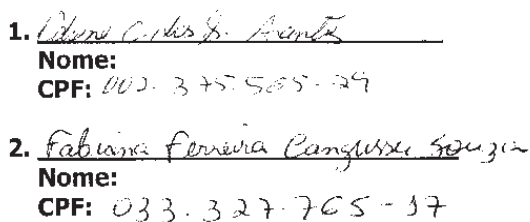 1. C. dos S.
Nome:
CPF: 002.375.565-29
2. Fabiana Ferreira Cangussu Souza
Nome:
CPF: 033.327.765-17